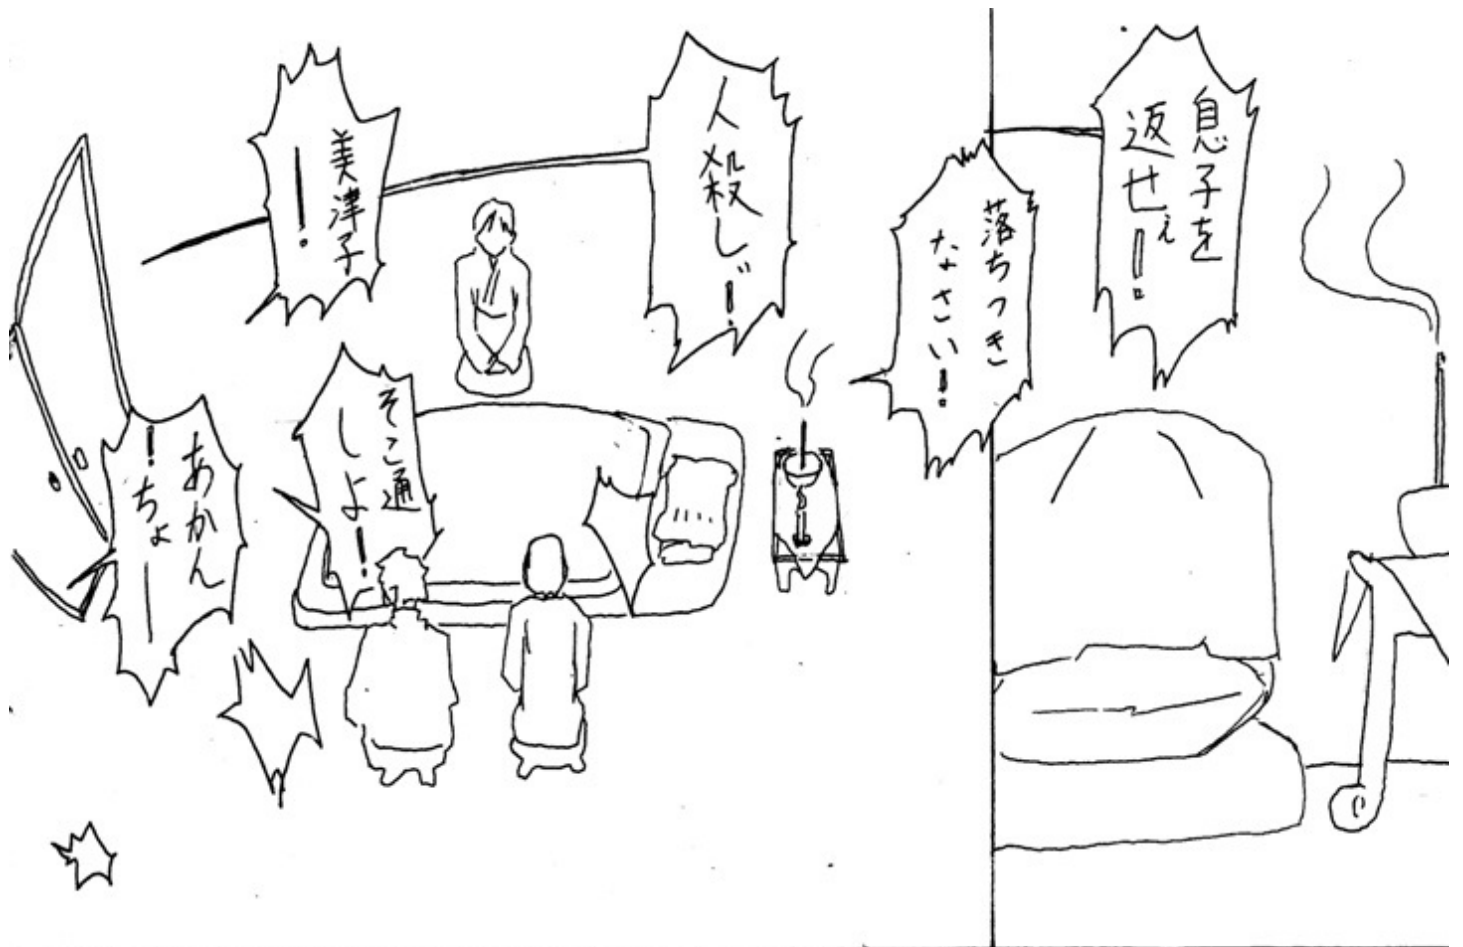 息子を
返せぇー!
落ちつき
なさい!
人殺し゛!
美津子
ー!
そこ通
しよ!
あかん
!ちょー